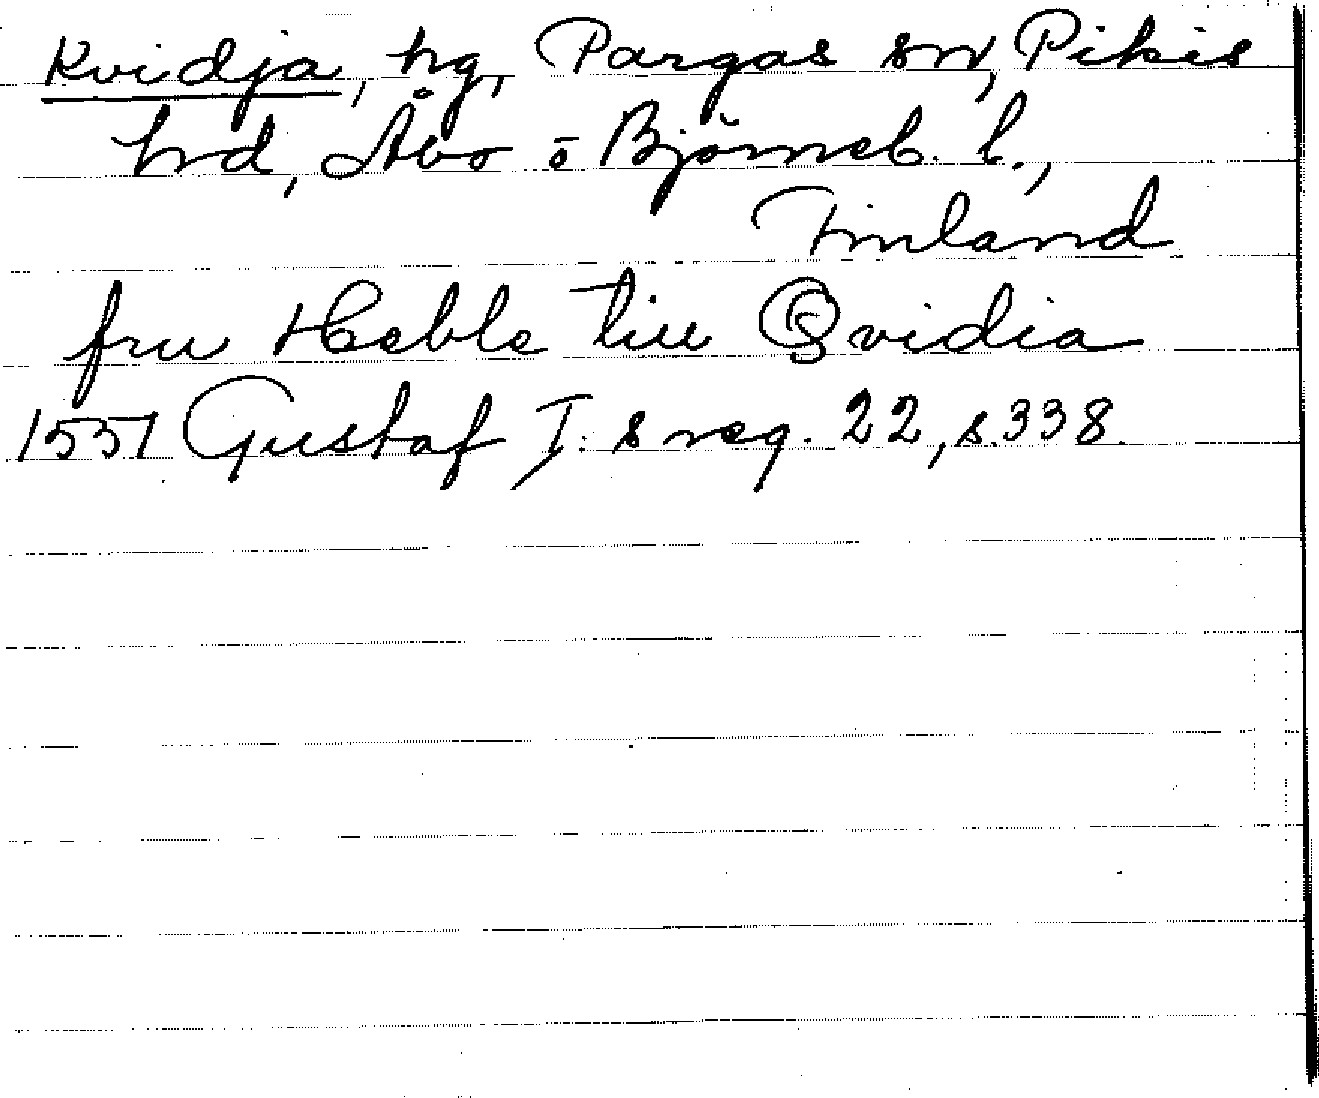 Kvidja, hg, Pargas sn, Pikis
hrd, Åbo o Björneb. l.,
Finland
fru Heble till Qvidia
1551 Gustaf I:s reg. 22, s.338.